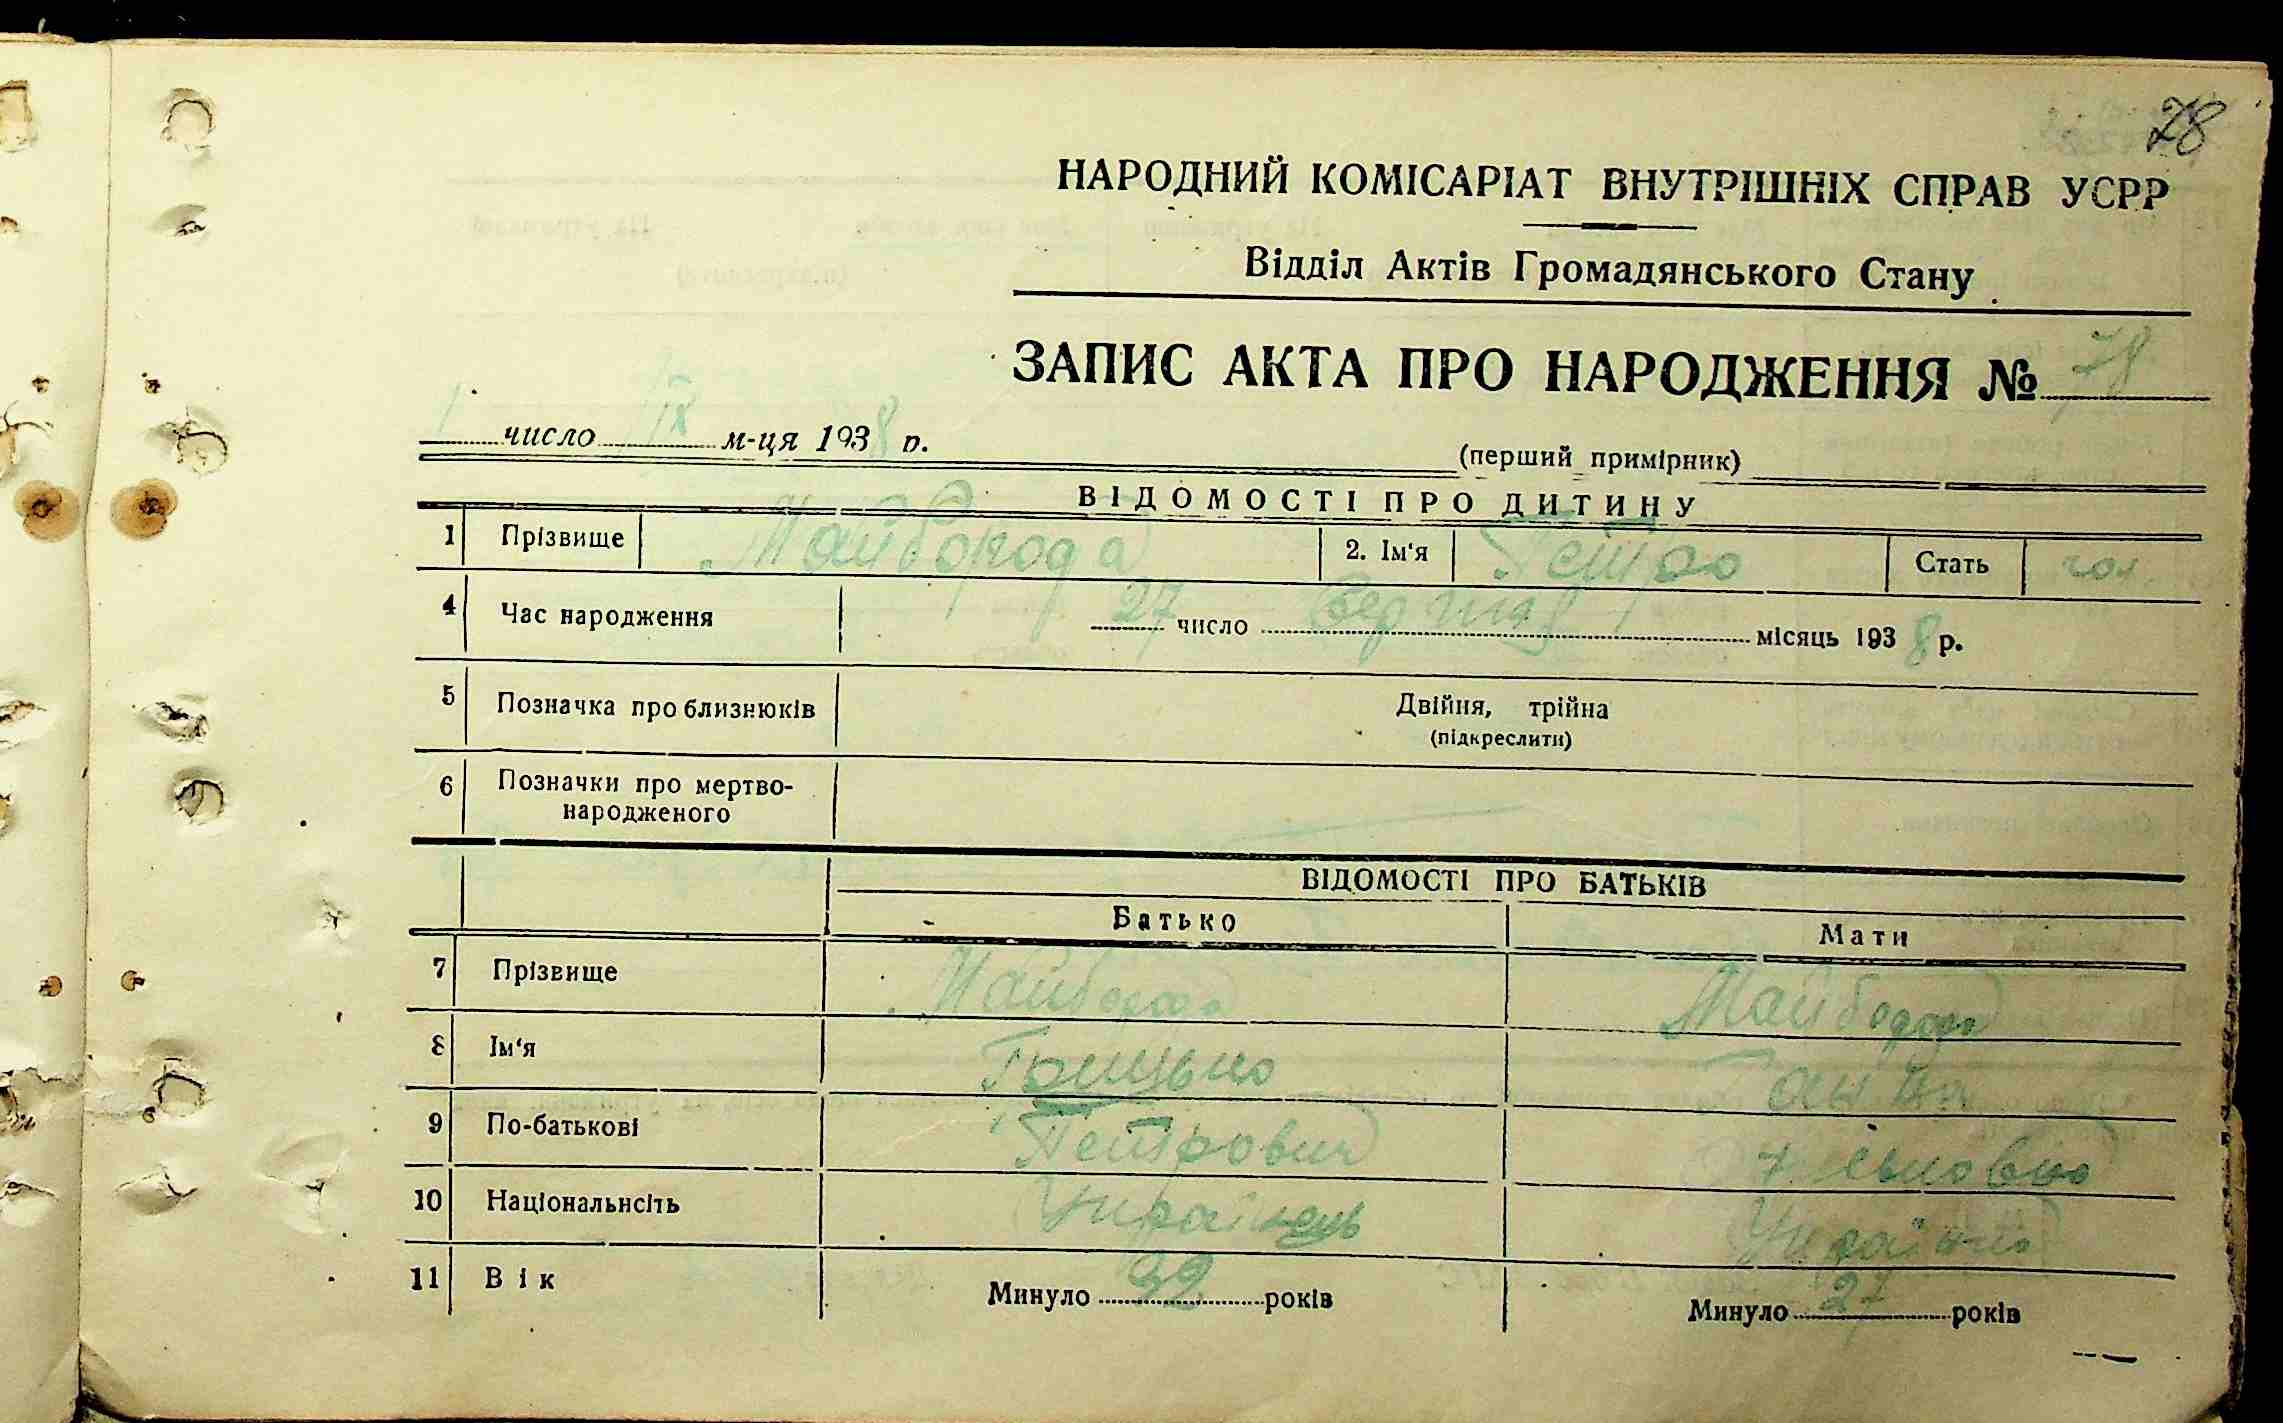 78
НАРОДНИЙ КОМІСАРІАТ ВНУТРІШНІХ СПРАВ УСРР
Відділ Актів Громадянського Стану
ЗАПИС АКТА ПРО НАРОДЖЕННЯ № 78
1 число IX м-ця 1938 р.
(перший примірник)
ВІДОМОСТІ ПРО ДИТИНУ
1 Прізвище Майборода 2. Ім'я Петро Стать чол.
4 Час народження 27 число Серпня місяць 1938 р.
5 Позначка про близнюків Двійня, трійна
(підкреслити)
6 Позначки про мертво-
народженого
ВІДОМОСТІ ПРО БАТЬКІВ
Батько Мати
7 Прізвище Майборода Майборода
8 Ім'я Грицько Ганна
9 По-батькові Петрович
10 Національність Українець Українка
11 Вік Минуло 39 років Минуло 27 років